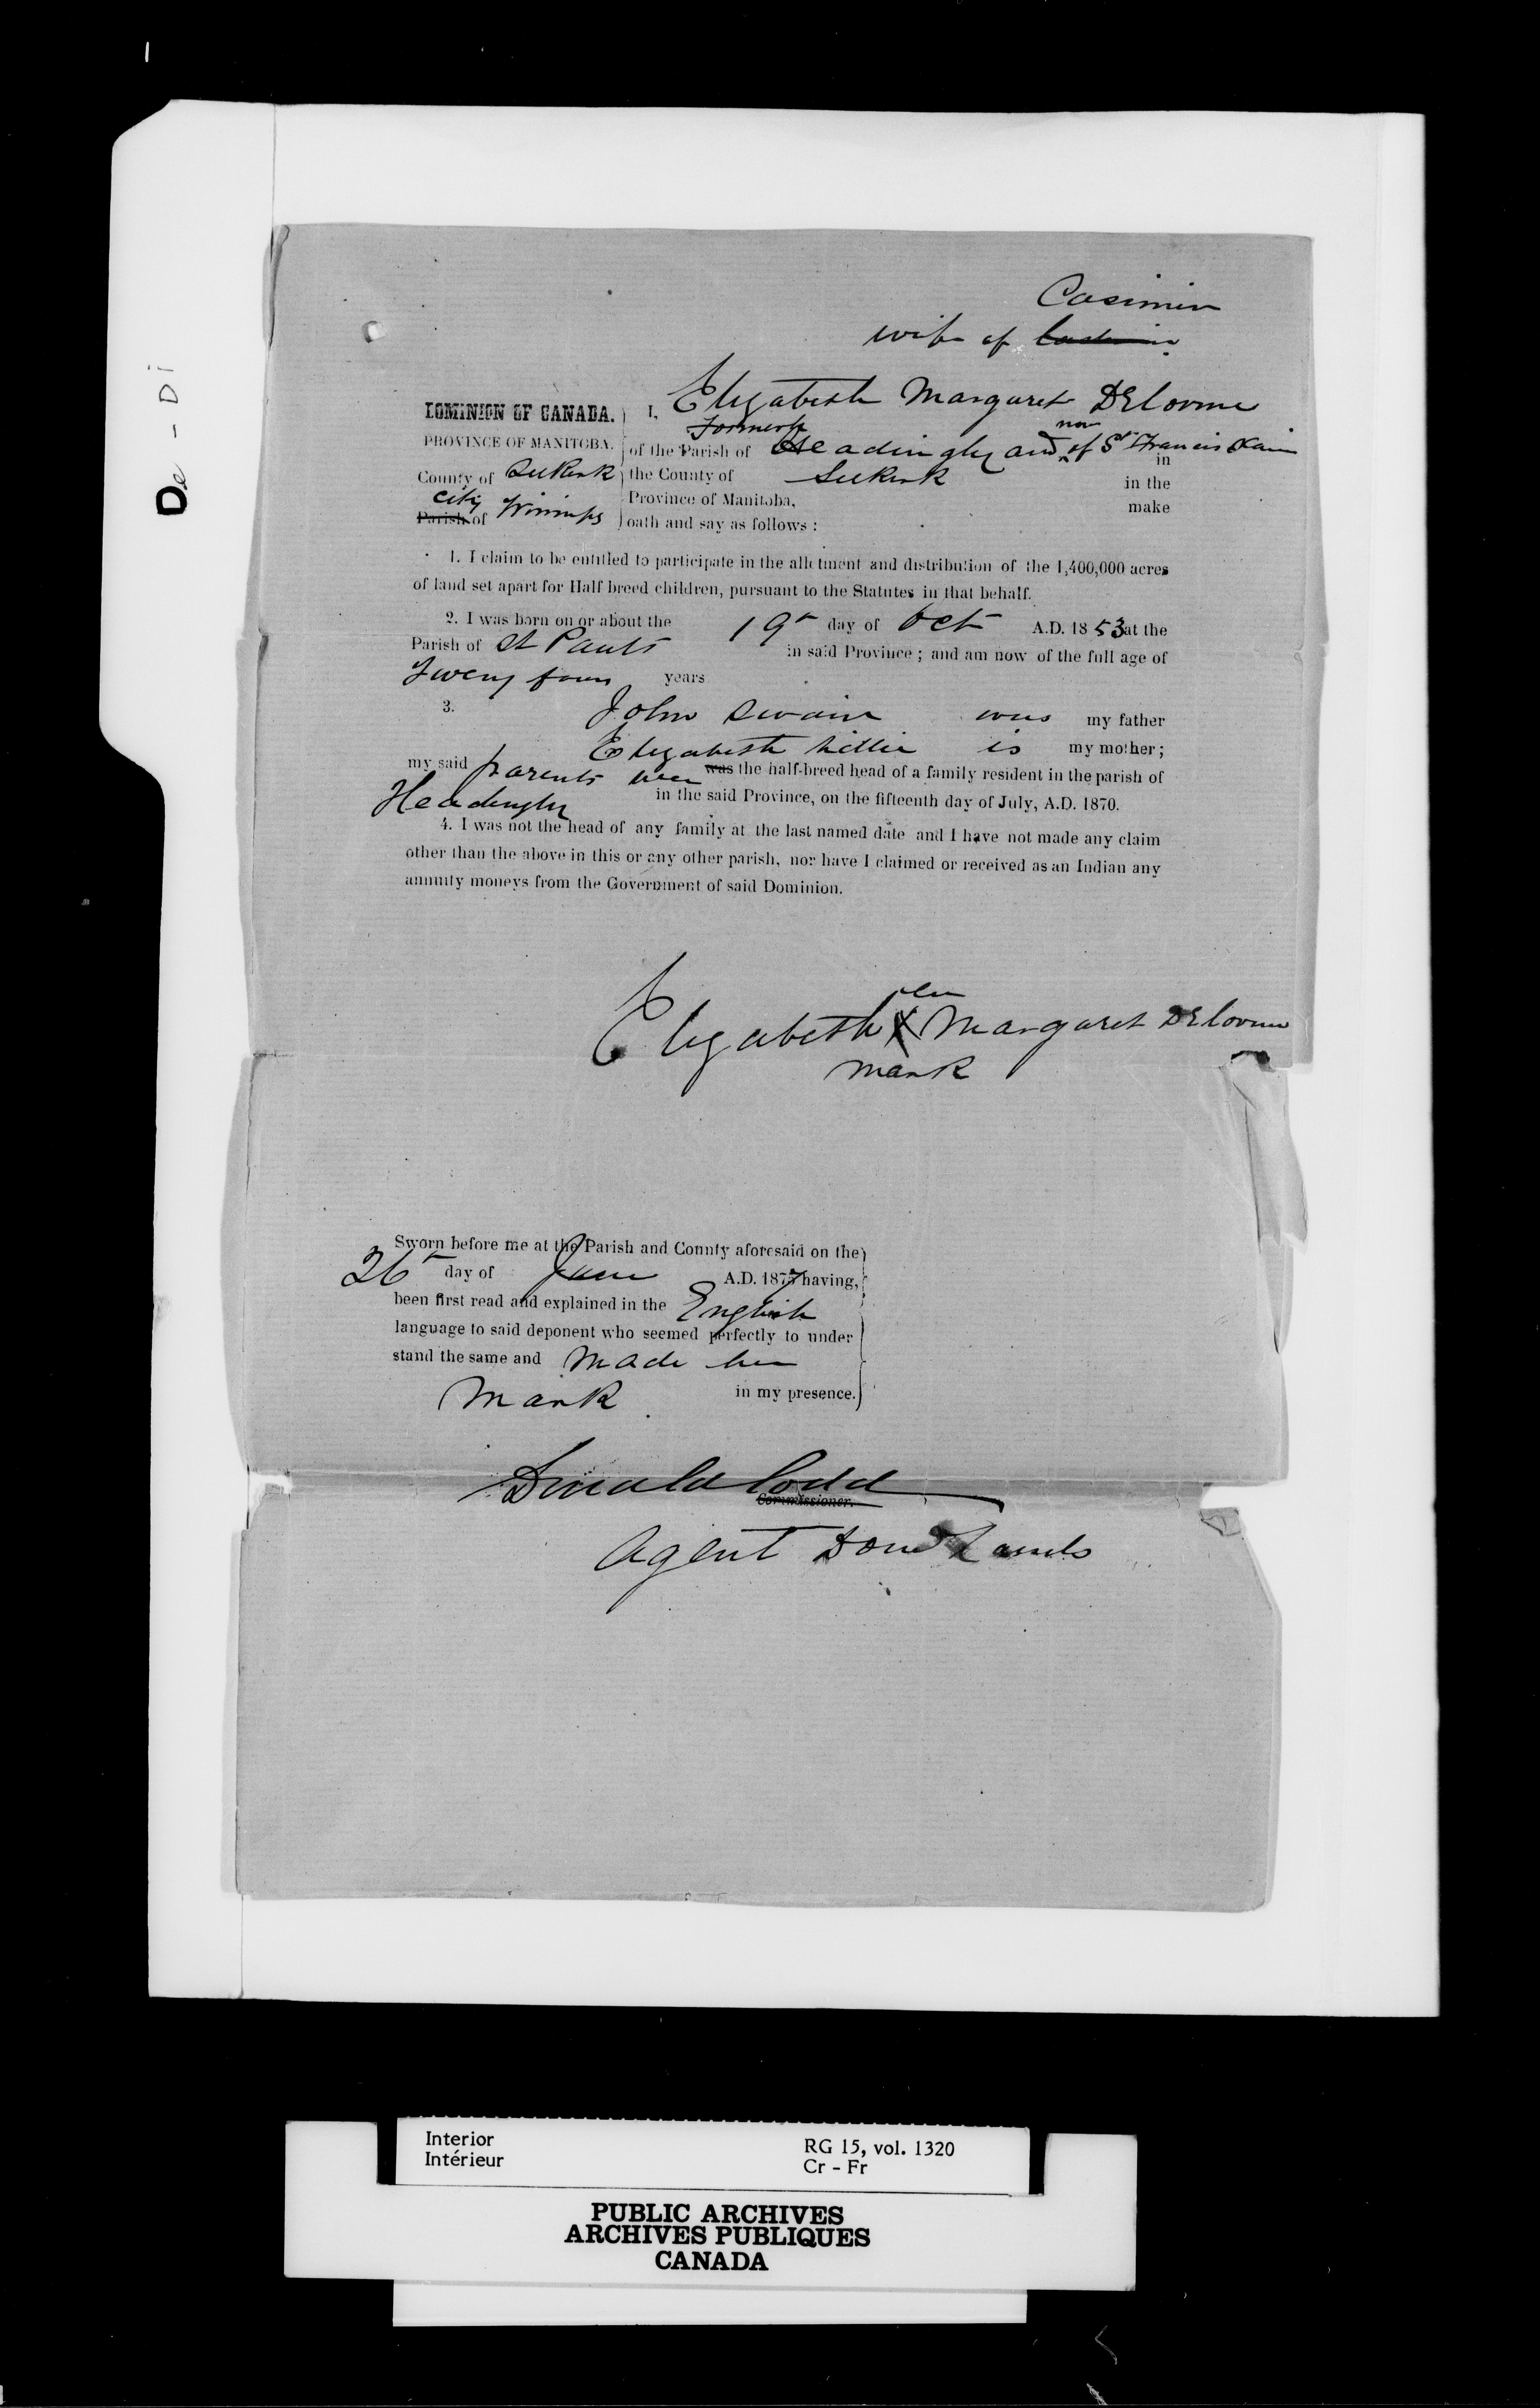 De - Di
Casimir
wife of
DOMINION OF CANADA. I, Elizabeth Margaret DElorme
Formerly now
PROVINCE OF MANITOBA. of the Parish of Headingly and of St Francis Xavier in
County of Selkirk the County of Selkirk in the
City Province of Manitoba, make
Parish of Winnipeg oath and say as follows :
1. I claim to be entitled to participate in the allotment and distribution of the 1,400,000 acres
of land set apart for Half breed children, pursuant to the Statutes in that behalf.
2. I was born on or about the 19th day of Oct A.D. 1853 at the
Parish of St Pauls in said Province ; and am now of the full age of
Tweny four years
3. John Swain was my father
Elizabeth is my mother ;
my said parents were was the half-breed head of a family resident in the parish of
Headingly in the said Province, on the fifteenth day of July, A.D. 1870.
4. I was not the head of any family at the last named date and I have not made any claim
other than the above in this or any other parish, nor have I claimed or received as an Indian any
annuity moneys from the Government of said Dominion.
her
Elizabeth X Margaret DElorme
mark
Sworn before me at the Parish and County aforesaid on the
26th day of June A.D. 1877 having,
been first read and explained in the English
language to said deponent who seemed perfectly to under
stand the same and made her
mark in my presence.
Donald Codd
Commissioner.
Agent Dom Lands
Interior RG 15, vol. 1320
Intérieur Cr - Fr
PUBLIC ARCHIVES
ARCHIVES PUBLIQUES
CANADA